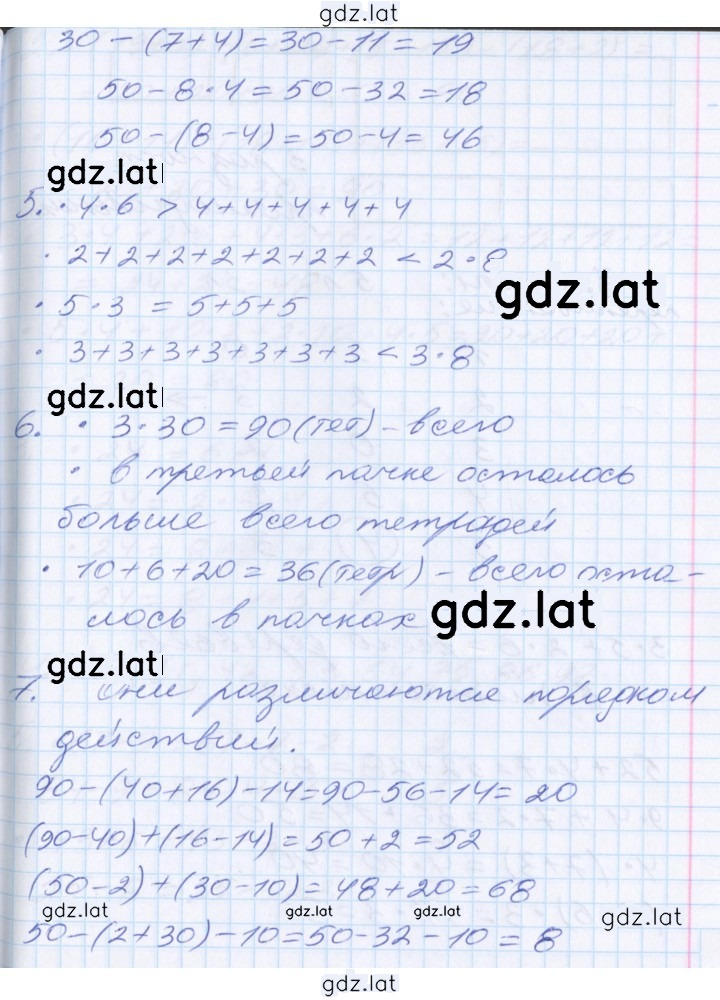 gdz.lat
30 - (7+4) = 30 - 11 = 19
50 - 8 · 4 = 50 - 32 = 18
50 - (8 - 4) = 50 - 4 = 46
gdz.lat
5. · 4 · 6 > 4 + 4 + 4 + 4 + 4
· 2+2+2+2+2+2+2 < 2 · 8
gdz.lat
· 5 · 3 = 5+5+5
· 3+3+3+3+3+3+3 < 3 · 8
gdz.lat
6. · 3 · 30 = 90 (тет) - всего
· в третьей пачке осталось
больше всего тетрадей
· 10 + 6 + 20 = 36 (тетр) - всего оста-
лось в пачках
gdz.lat
gdz.lat
7. они различаются порядком
действий.
90 - (40+16) - 14 = 90 - 56 - 14 = 20
(90-40) + (16-14) = 50 + 2 = 52
(50-2) + (30-10) = 48 + 20 = 68
gdz.lat gdz.lat gdz.lat gdz.lat
50 - (2+30) - 10 = 50 - 32 - 10 = 8
gdz.lat